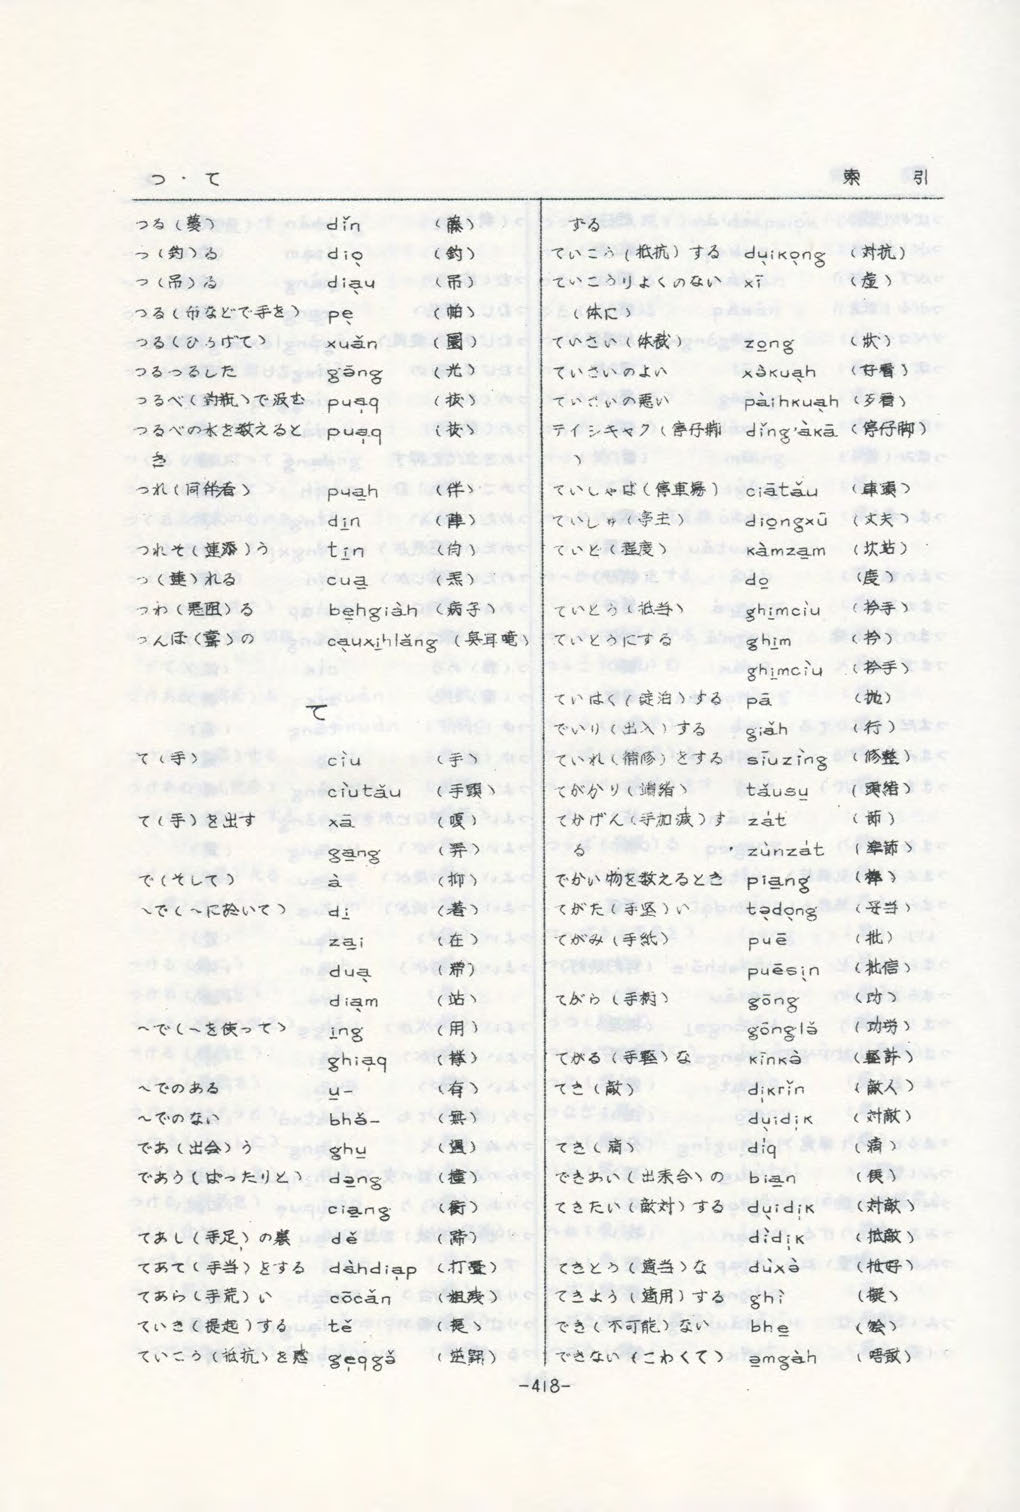 つ・て
索 引
つる（蔓） dǐn （藤）
つ（釣）る diọ （釣）
つ（吊）る diạu （吊）
つる（布などで手を） pẹ （帕）
つる（ひろげて） xuǎn （圜）
つるつるした gǎng （光）
つるべ（釣瓶）で汲む puạq
つるべの水を数えると puạq
き
つれ（同伴者） pua̱h （伴）
di̱n （陣）
つれそ（連添）う ti̱n
つ（連）れる cua̱
つわ（悪阻）る be̱hgiàh （病子）
つんぼ（聾）の cạuxi̱hlǎng （臭耳聾）
て
て（手） cìu （手）
cìutǎu （手頭）
て（手）を出す xā （嗄）
ga̱ng
で（そして） à （抑）
〜で（〜に於いて） di̱ （着）
za̱i （在）
duạ （帶）
diạm （站）
〜で（〜を使って） i̱ng （用）
ghiạq （様）
〜でのある u̱- （有）
〜でのない bhǒ- （無）
であ（出会）う ghu̱ （遇）
であう（ばったりと） dạng （撞）
cia̱ng （衝）
てあし（手足）の裏 dě （蹄）
てあて（手当）をする dàhdiạp （打疊）
てあら（手荒）い cōcǎn （粗残）
ていき（提起）する tě （提）
ていこう（抵抗）を感 gẹqgǎ
する
ていこう（抵抗）する dụikọng （対抗）
ていこうりょくのない xī （虚）
（体に）
ていさい（体裁） zo̱ng （状）
ていさいのよい xòkuạh （好看）
ていさいの悪い pàihkuạh （歹看）
テイシキャク（停仔脚 dǐng'àkā （停仔脚）
）
ていしゃば（停車場） ciātǎu （車頭）
ていしゅ（亭主） dio̱ngxū （丈夫）
ていど（程度） kàmza̱m （坎站）
do̱ （度）
ていとう（抵当） ghi̱mcìu （扲手）
ていとうにする ghi̱m （扲）
ghi̱mcìu （扲手）
ていはく（碇泊）する pā （抛）
でいり（出入）する giǎh （行）
ていれ（補修）をする sīuzìng （修整）
てがかり（端緒） tǎusu̱ （頭緒）
てかげん（手加減）す zát （節）
る zùnzát （準節）
でかい物を数えるとき pia̱ng
てがた（手堅）い tədọng （妥当）
てがみ（手紙） puē （批）
puēsịn （批信）
てがら（手柄） gōng （功）
gōnglǒ （功労）
てがる（手軽）な kīnkò （軽許）
てき（敵） di̱krǐn （敵人）
dụidi̱k （対敵）
てき（滴） díq （滴）
できあい（出来合）の bia̱n （便）
てきたい（敵対）する dụidi̱k （対敵）
dìdi̱k （抵敵）
てきとう（適当）な dùxò （抵好）
てきよう（適用）する ghì （擬）
でき（不可能）ない bhe̱
できない（こわくて） a̱mgàh （唔敢）
-418-